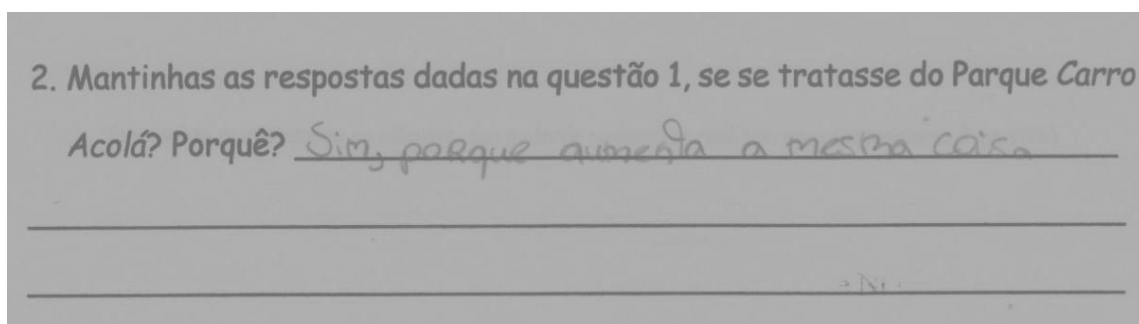 2. Mantinhas as respostas dadas na questão 1, se se tratasse do Parque Carro
Acolá? Porquê? Sim, porque aumenta a mesma coisa